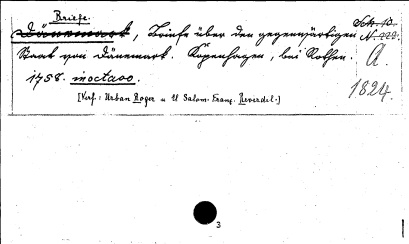 Briefe.
Dänemark, Briefe über den gegenwärtigen
Sch. 10.
N. 222.
Staat von Dänemark. Kopenhagen, bei Rothen.
A.
1758. in octavo.
1824.
[Verf.: Urban Roger u. El. Salom. Franç. Reverdil.]
3